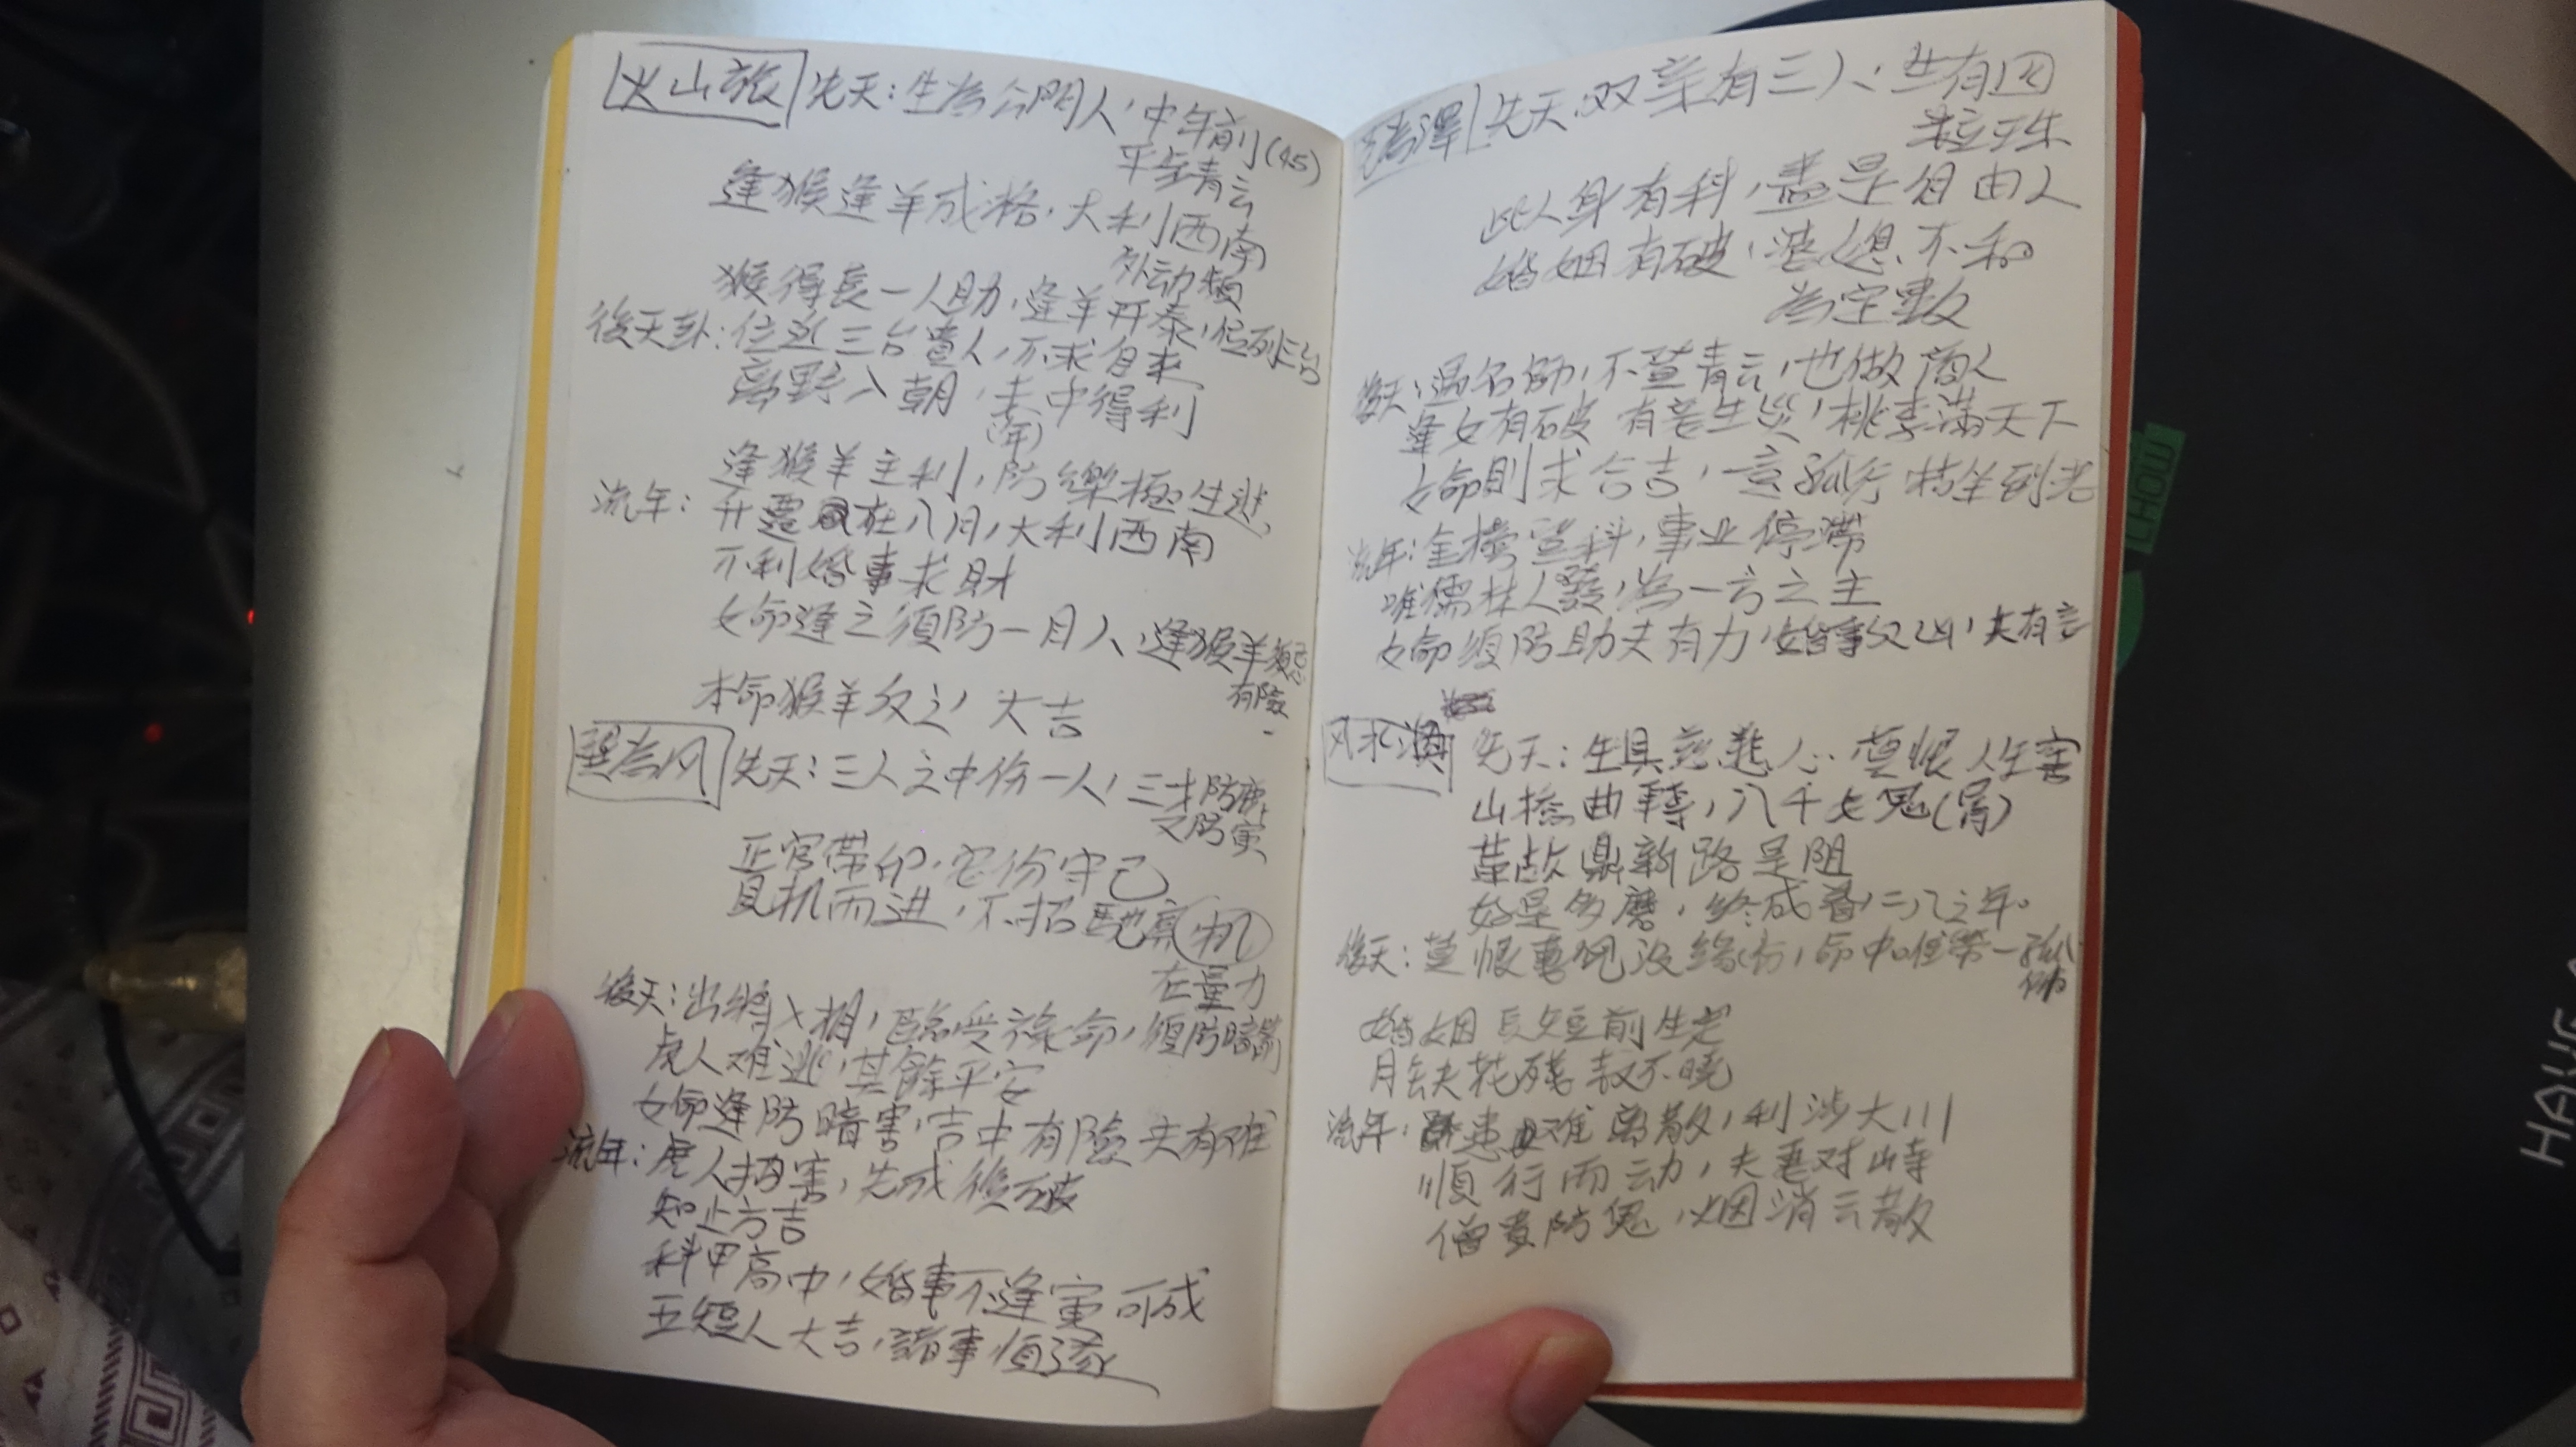 火山旅 先天：生为公門人，中年前(45)
平步青云
逢猴逢羊成格，大利西南
外动頻
猴得長一人助，逢羊开泰，位列三台
後天卦：位近三台貴人，不求自来
离野入朝，去中得利
(年)
逢猴羊主利，防樂極生悲，
流年：升遷在八月，大利西南
不利婚事求財
女命逢之須防一月人，逢猴羊
有險
本命猴羊反之，大吉
巽為风 先天：三人之中份一人，三才防
又防寅
正官带印，安份守己
見机而进，不招 机
在量力
後天：出將入相，臨受祿命，須防暗箭
虎人难逃，其餘平安
女命逢防暗害，吉中有險 夫有难
流年：虎人招害，先成後破
知止方吉
科甲高中，婚事不逢寅可成
五短人大吉，諸事順遂
為澤 先天：双亲有三人，共有四
粒玉珠
此人身有科，盡是自由人
婚姻有破，婆媳不和
為定數
後天：遇名師，不登青云，也做商人
逢女有破 有老生災，桃李滿天下
女命則求合吉，意孤行 枯坐到老
流年：金榜登科，事业停滯
唯儒林人發，為一方之主
女命須防助夫有力，婚事反凶，夫有言
风水渙 先天：生具慈悲心，莫恨人生害
山撓曲轉，八千女鬼(胃)
革故鼎新路是阻
好是多磨，終成眷，二八之年。
後天：莫恨妻兒没緣份，命中唯带一孤
婚姻長短前生定
月缺花殘 不曉
流年：患难离散，利涉大川
順行而动，夫妻对峙
僧責防鬼，烟消云散
HOW